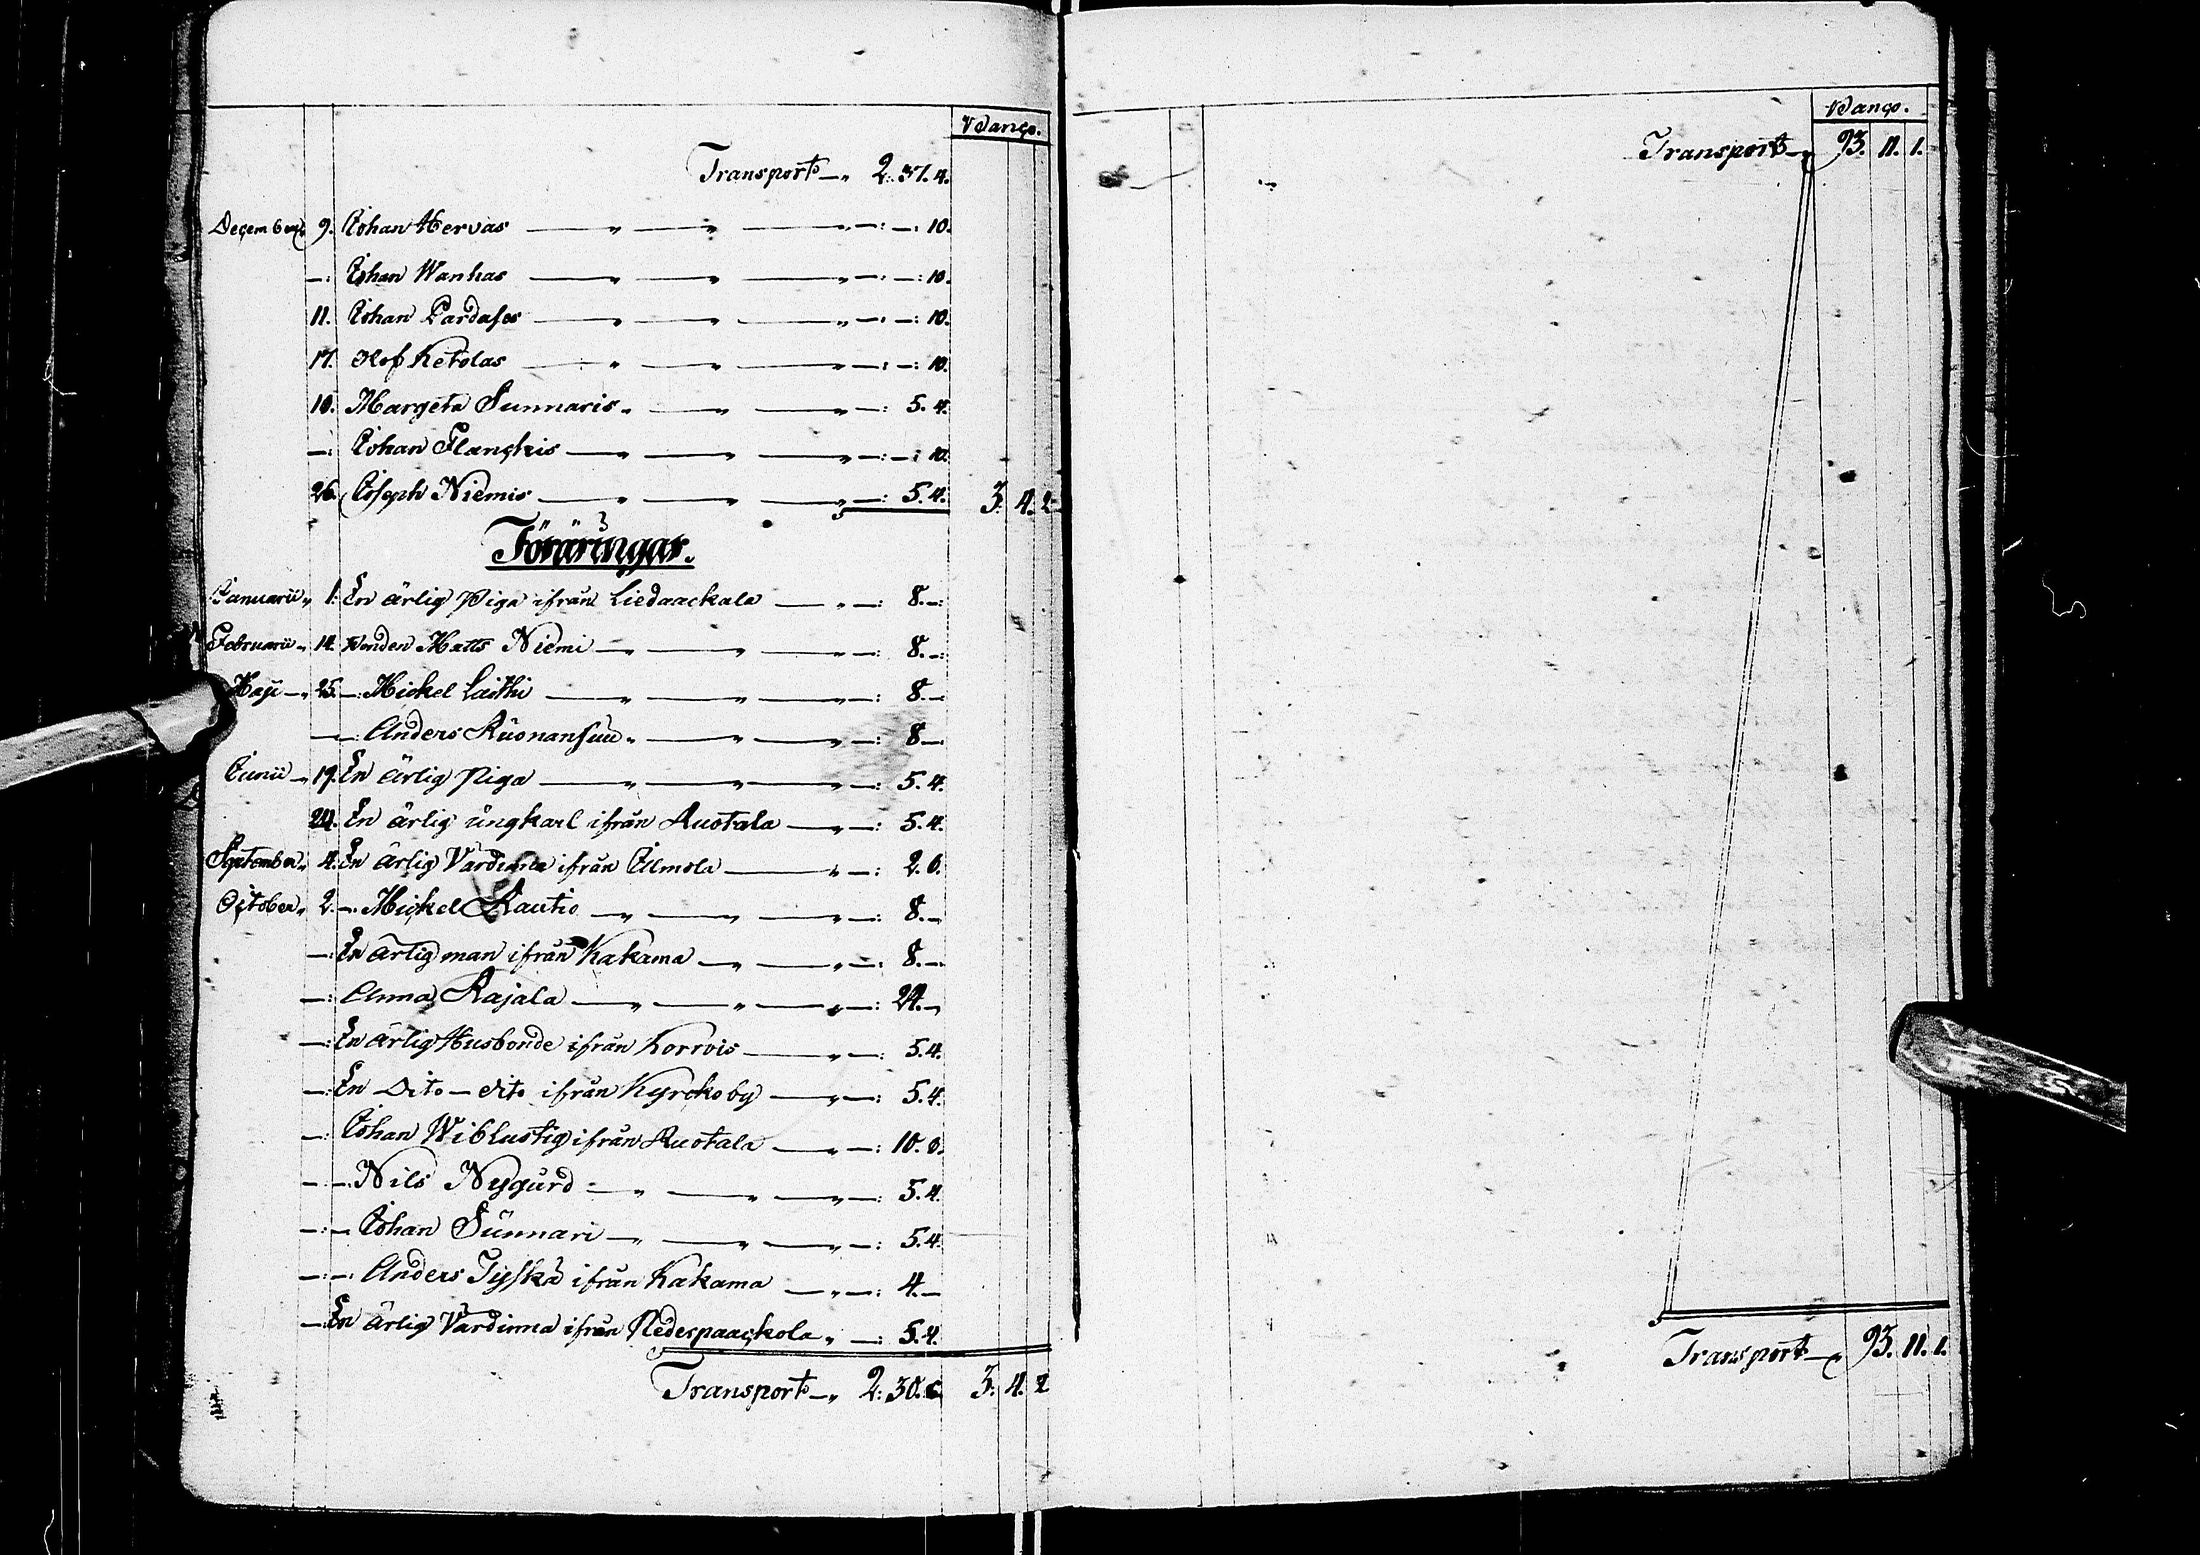 Transport 2. 37. 4.
December 9. Johan Hervas — " — " — " —: —: 10.
—: Johan Wanhas — " — " — " —: —: 10.
11. Johan Pardases — " — " — " —: —: 10.
17. Olof Ketolas — " — " — " —: —: 10.
18. Margeta Sunnaris " — " — " —: 5. 4.
—: Johan Planckis — " — " — " —: —: 10.
26. Joseph Niemis — " — " — " —: 5. 4. 3. 4. 2
Föräringar.
Januarii " 1. En ärlig Piga ifrån Liedaackala — " —: 8. —:
Februarii " 14. Bonden Matts Niemi — " — " — " —: 8. —:
Maji — " 25. —: Mickel Laithi — " — " — " —: 8. —
—: Anders Ruonansuu " — " — " —: 8 —:
Junii — " 19. En ärlig Piga — " — " — " —: 5. 4.
24. En ärlig ungkarl ifrån Ruotala — " —: 5. 4.
September " 4. En ärlig Värdinna ifrån Ilmola — " —: 2. 6.
October " 2. —: Mickel Rautio — " — " — " —: 8. —
—: En ärlig man ifrån Kakama — " — " —: 8. —:
—: Anna Rajala — " — " — " —: 24. —
—: En ärlig Husbonde ifrån Korrois — " —: 5. 4.
—: En Dito — dito ifrån Kyrckoby — " —: 5. 4.
—: Johan Wiblustig ifrån Ruotala — " —: 10. 8.
— —: Nils Nygurd — " — " — " —: 5. 4.
—: — Johan Sünnari — " — " — " —: 5. 4.
—: —: Anders Tyskä ifrån Kakama — " —: 4. —
—: En ärlig Värdinna ifrån Nederpaackola " —: 5. 4.
Transport — " 2. 30. 6 3. 4. 2
Transport — " 93. 11. 1.
Transport — " 93. 11. 1.